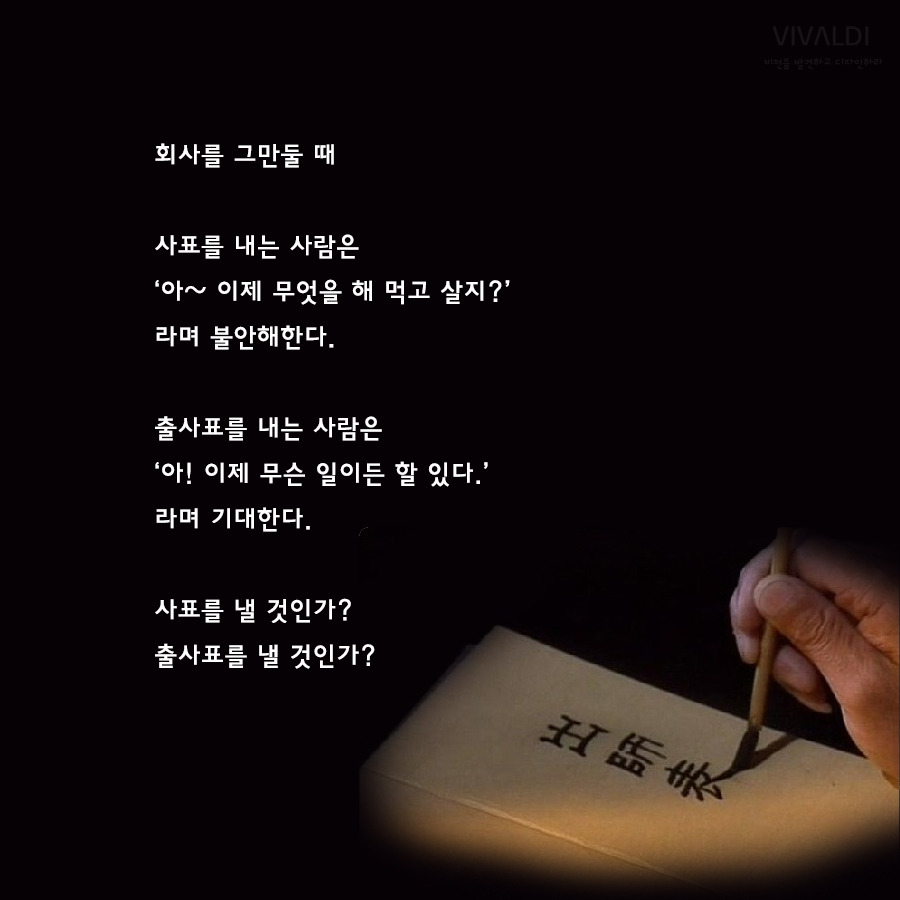 VIVALDI
비전을 발견하고 디자인하라
회사를 그만둘 때
사표를 내는 사람은
‘아~ 이제 무엇을 해 먹고 살지?’
라며 불안해한다.
출사표를 내는 사람은
‘아! 이제 무슨 일이든 할 있다.’
라며 기대한다.
사표를 낼 것인가?
출사표를 낼 것인가?
出師表